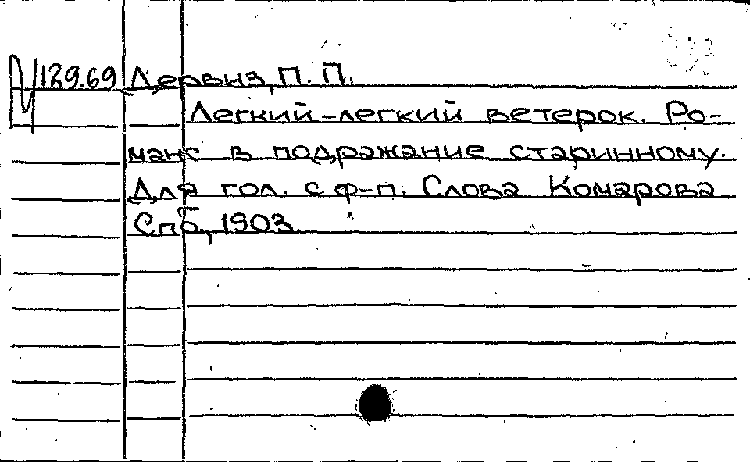 129.69 Дервиз, П. П.
Легкий-легкий ветерок. Ро-
манс в подражание старинному.
Для гол. с ф-п. Слова Комарова
Спб, 1903